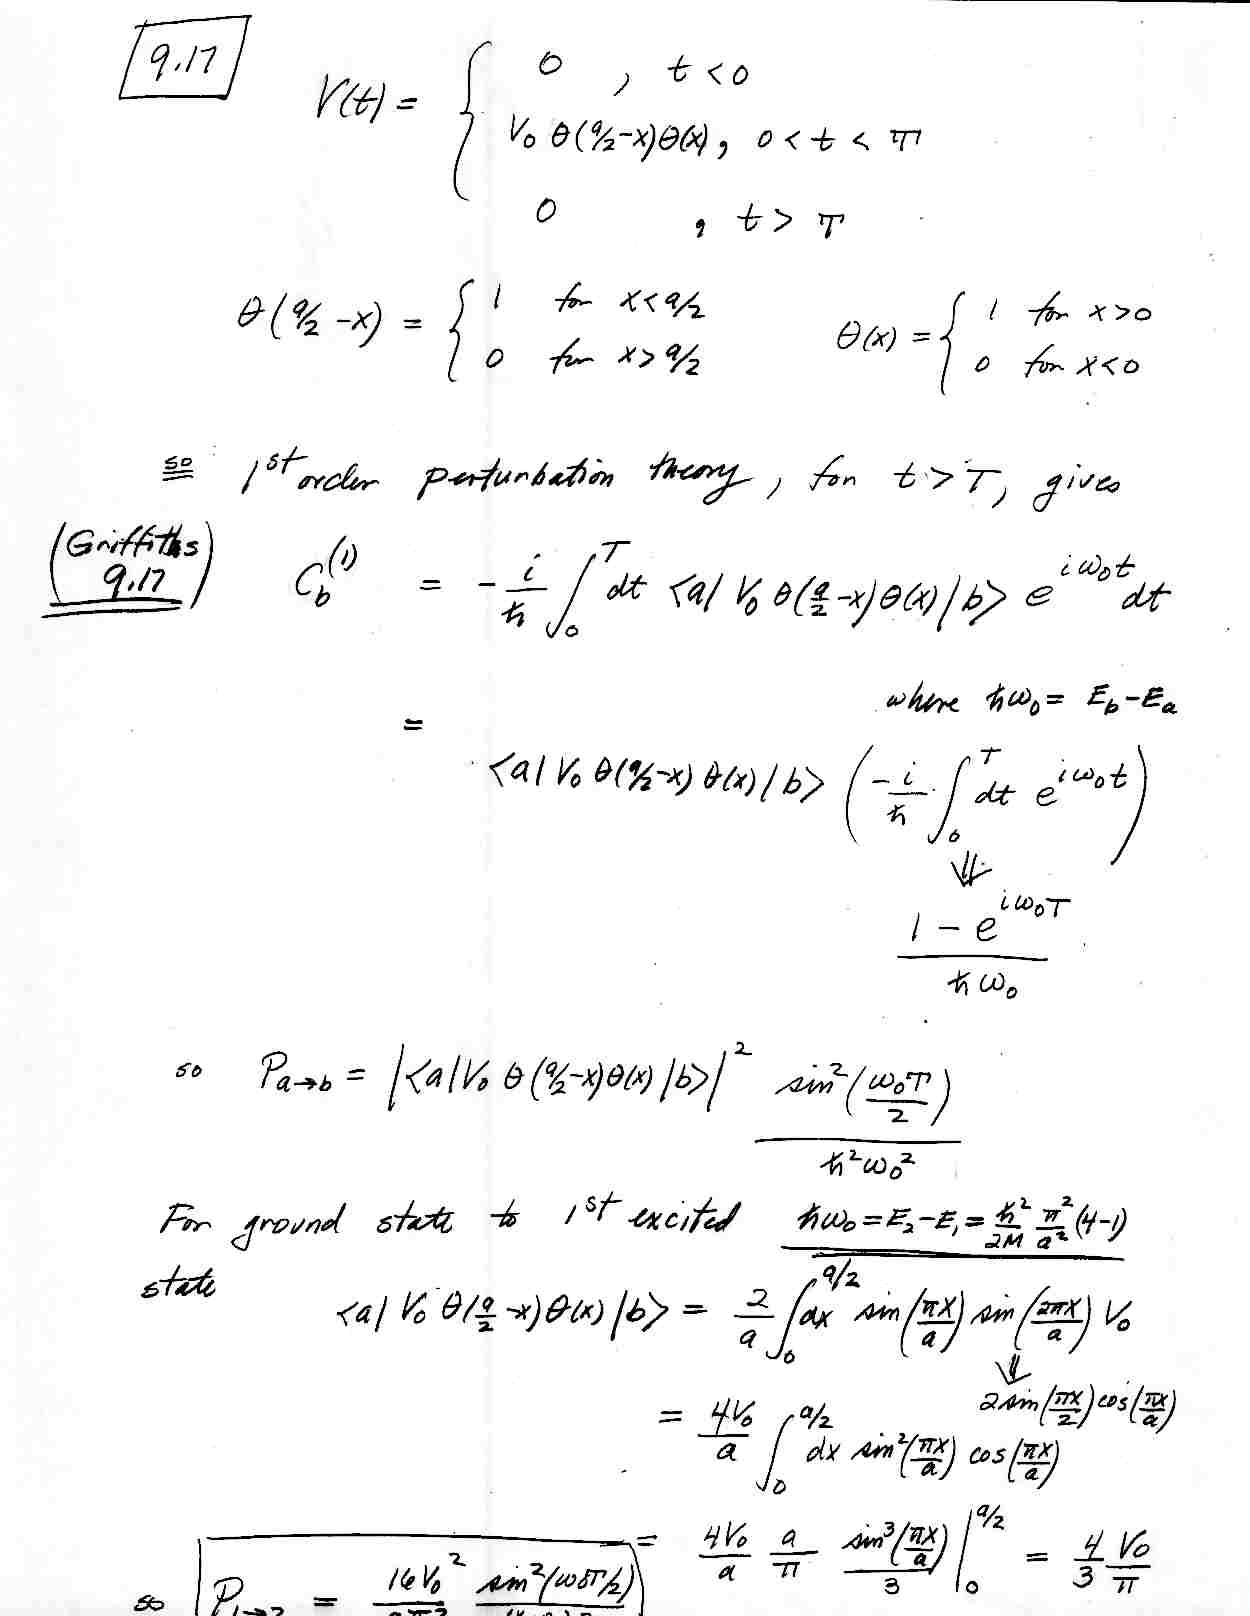 9.17
V(t) = { 0 , t < 0
V₀ θ(a/2-x)θ(x), 0 < t < T
0 , t > T
θ(a/2 -x) = { 1 for x<a/2
0 for x>a/2
θ(x) = { 1 for x>0
0 for x<0
so 1st order perturbation theory, for t > T, gives
(Griffiths 9.17) C_b^(1) = - i/ħ ∫₀^T dt <a| V₀ θ(a/2-x)θ(x)|b> e^{iω₀t} dt
where ħω₀ = E_b-E_a
= <a| V₀ θ(a/2-x) θ(x)|b> (-i/ħ ∫₀^T dt e^{iω₀t})
⇓
1 - e^{iω₀T} / ħω₀
so P_{a→b} = |<a|V₀ θ(a/2-x)θ(x)|b>|² sin²(ω₀T/2) / ħ²ω₀²
For ground state to 1st excited ħω₀ = E₂-E₁ = ħ²/2M π²/a² (4-1)
state
<a| V₀ θ(a/2 -x)θ(x)|b> = 2/a ∫₀^{a/2} dx sin(πx/a) sin(2πx/a) V₀
⇓
2 sin(πx/2) cos(πx/a)
= 4V₀/a ∫₀^{a/2} dx sin²(πx/a) cos(πx/a)
= 4V₀/a a/π sin³(πx/a)/3 |₀^{a/2} = 4/3 V₀/π
so P_{1→2} = 16V₀² sin²(ω₀T/2)